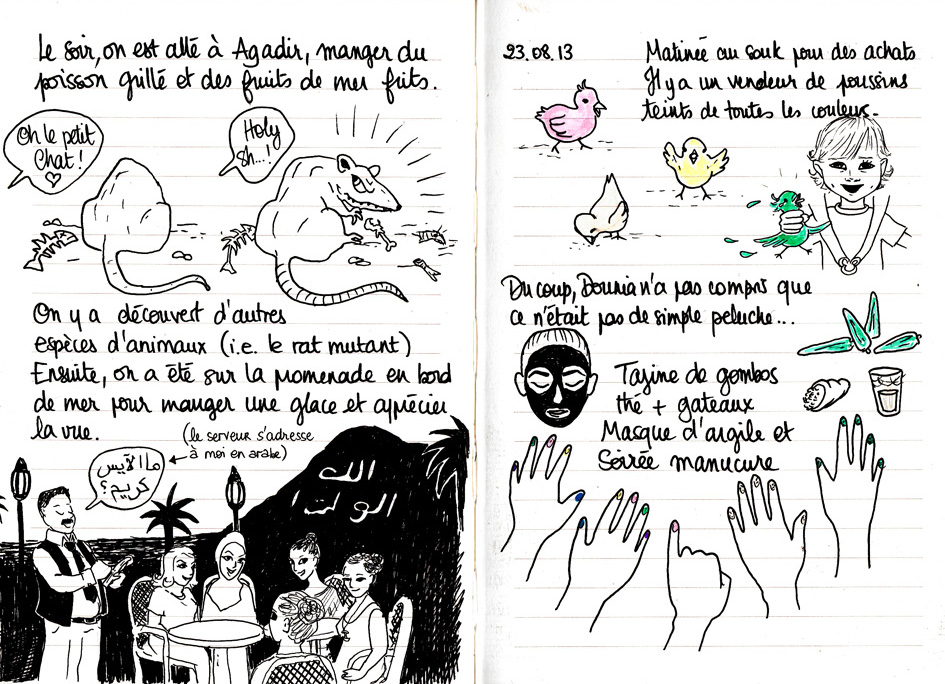 Le soir, on est allé à Agadir, manger du
poisson grillé et des fruits de mer frits.
Oh le petit
Chat !
Holy
Sh...!
On y a découvert d'autres
espèces d'animaux (i.e. le rat mutant)
Ensuite, on a été sur la promenade en bord
de mer pour manger une glace et apprécier
la vue.
(le serveur s'adresse
à moi en arabe)
ما الآيس
كريم؟
الله
الوطن
23.08.13
Matinée au souk pour des achats
Il y a un vendeur de poussins
teints de toutes les couleurs.
Du coup, Dounia n'a pas compris que
ce n'était pas de simple peluche...
Tajine de gombos
thé + gateaux
Masque d'argile et
Soirée manucure